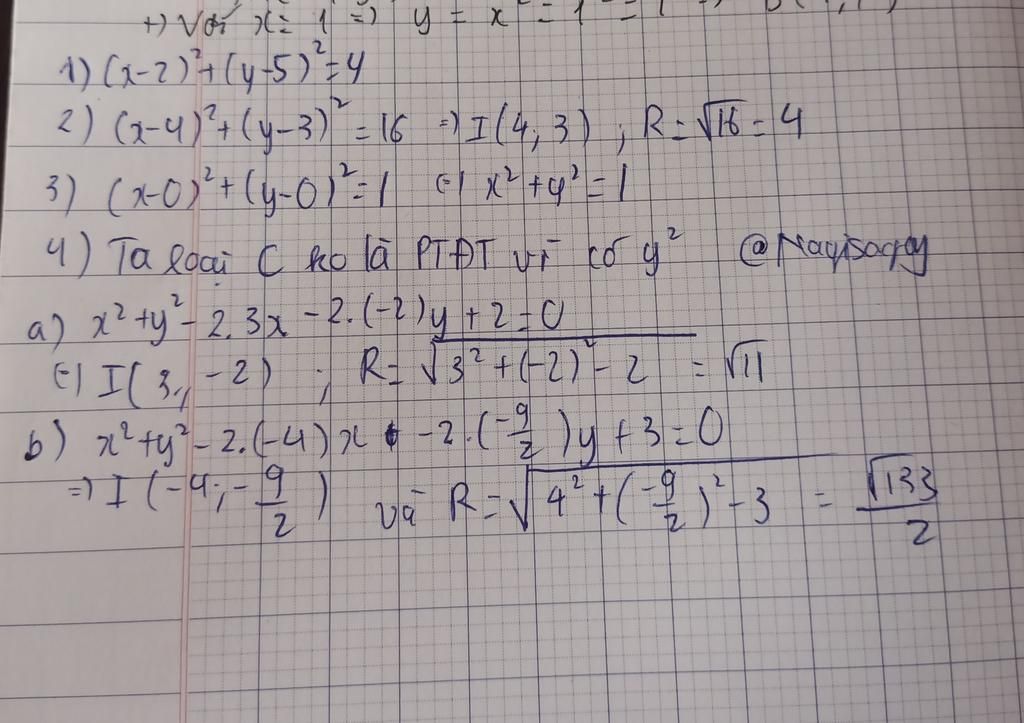 +) Với x = 1 => y = x² = 1² = 1
1) (x-2)²+(y-5)²=4
2) (x-4)²+(y-3)²=16 => I(4;3) ; R=√16=4
3) (x-0)²+(y-0)²=1 (=) x²+y²=1
4) Ta loại C ko là PTĐT vì có y² @Nagisaqpy
a) x²+y²-2.3x-2.(-2)y+2=0
(=) I(3; -2) ; R=√(3²+(-2)²-2) = √11
b) x²+y²-2.(-4)x -2.(-9/2)y+3=0
=) I(-4; -9/2) và R=√(4²+(-9/2)²-3) = √133/2